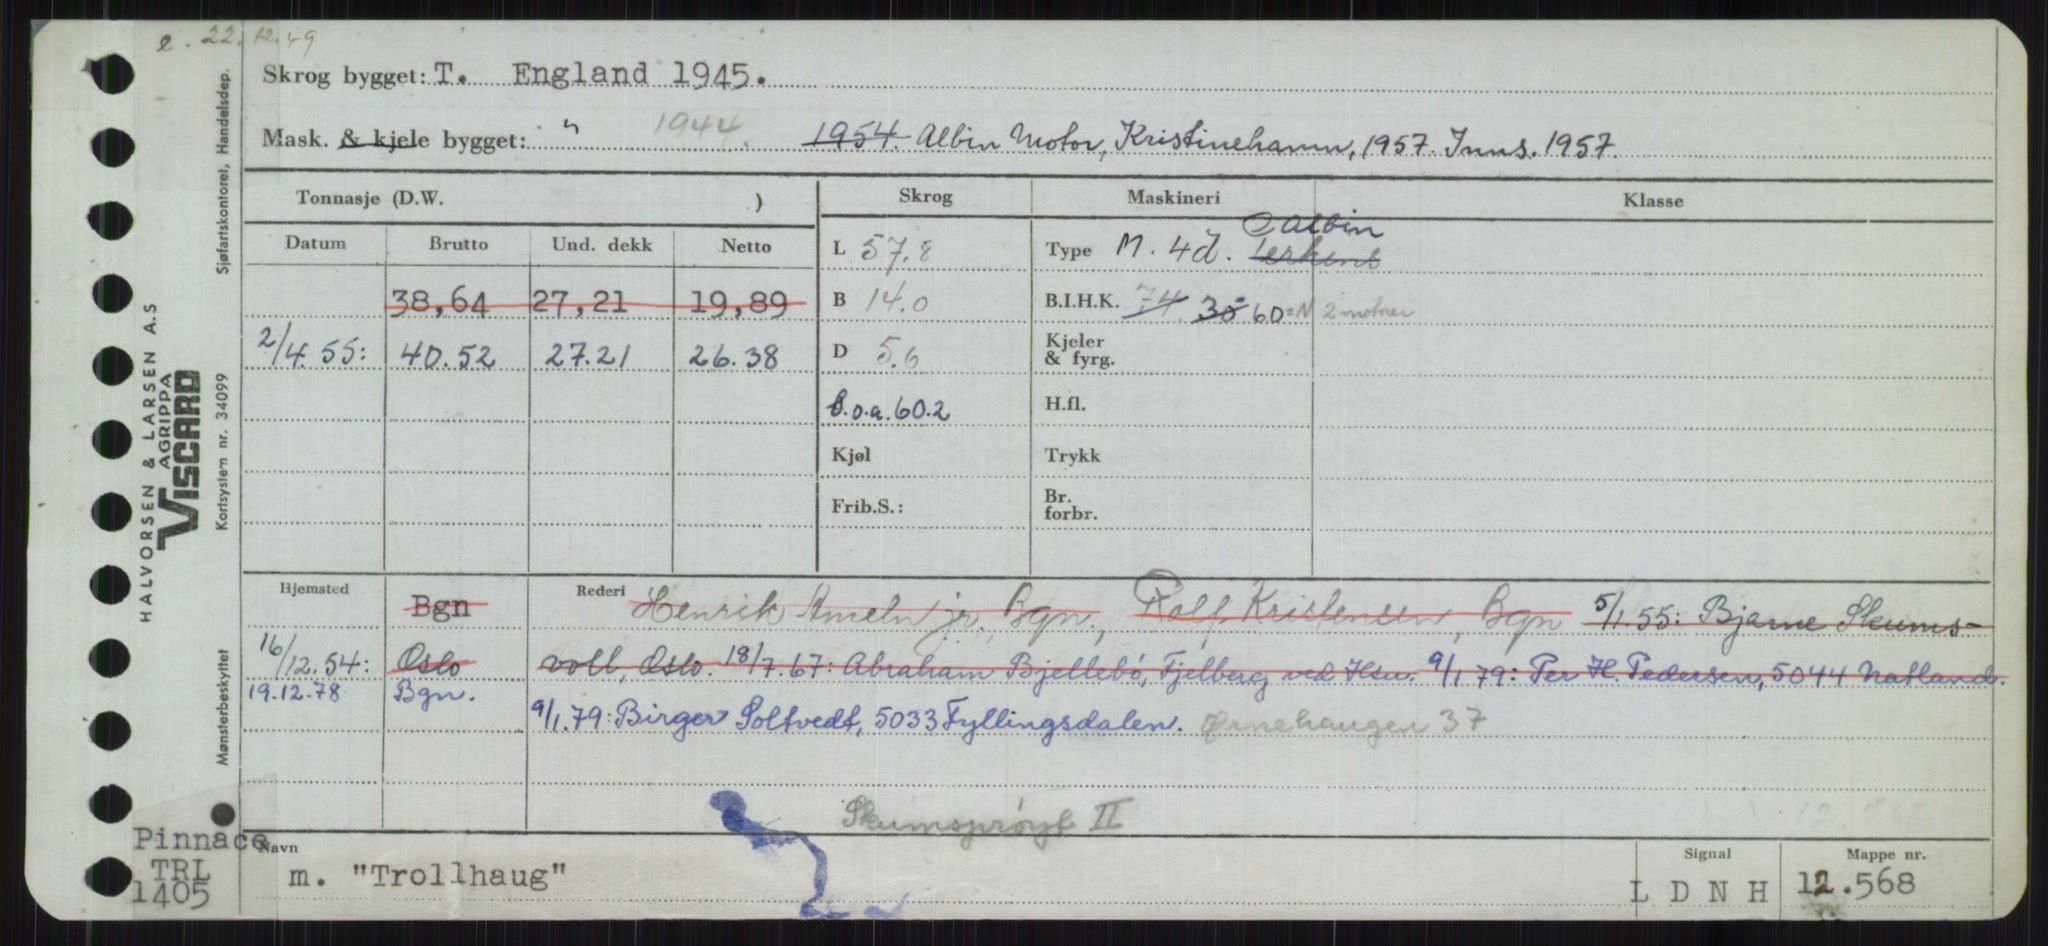 e. 22.12.49
Skrog bygget: T. England 1945.
Mask. & kjele bygget: " 1944. 1954. Albin Motor, Kristinehamn, 1957. Inns. 1957.
Tonnasje (D.W. )
Skrog
Maskineri
Klasse
Datum
Brutto
Und. dekk
Netto
38,64 27,21 19,89
2/4.55: 40.52 27.21 26.38
L 57.8
B 14.0
D 5.6
l.o.a. 60.2
Kjøl
Frib.S.:
Albin
Type M. 4d.
B.I.H.K. 74 30 60=N 2 motorer
Kjeler
& fyrg.
H.fl.
Trykk
Br.
forbr.
Hjemsted
Bgn
16/12.54: Oslo
19.12.78 Bgn.
Rederi Henrik Ameln jr. Bgn., Rolf Kristensen, Bgn 5/1.55: Bjarne Skums-
voll, Oslo. 18/7.67: Abraham Bjellebö, Fjelberg ved Hsu. 9/1.79: Per H. Pedersen, 5044 Natland.
9/1.79: Birger Soltvedt, 5033 Fyllingsdalen. Ørnehaugen 37
Skumsprøyt II
Navn
m. "Trollhaug"
Signal
L D N H
Mappe nr.
12.568
Pinnace
TRL
1405
HALVORSEN & LARSEN A.S
AGRIPPA
VISCARD
Sjøfartskontoret, Handelsdep.
Kortsystem nr. 34099
Mønsterbeskyttet